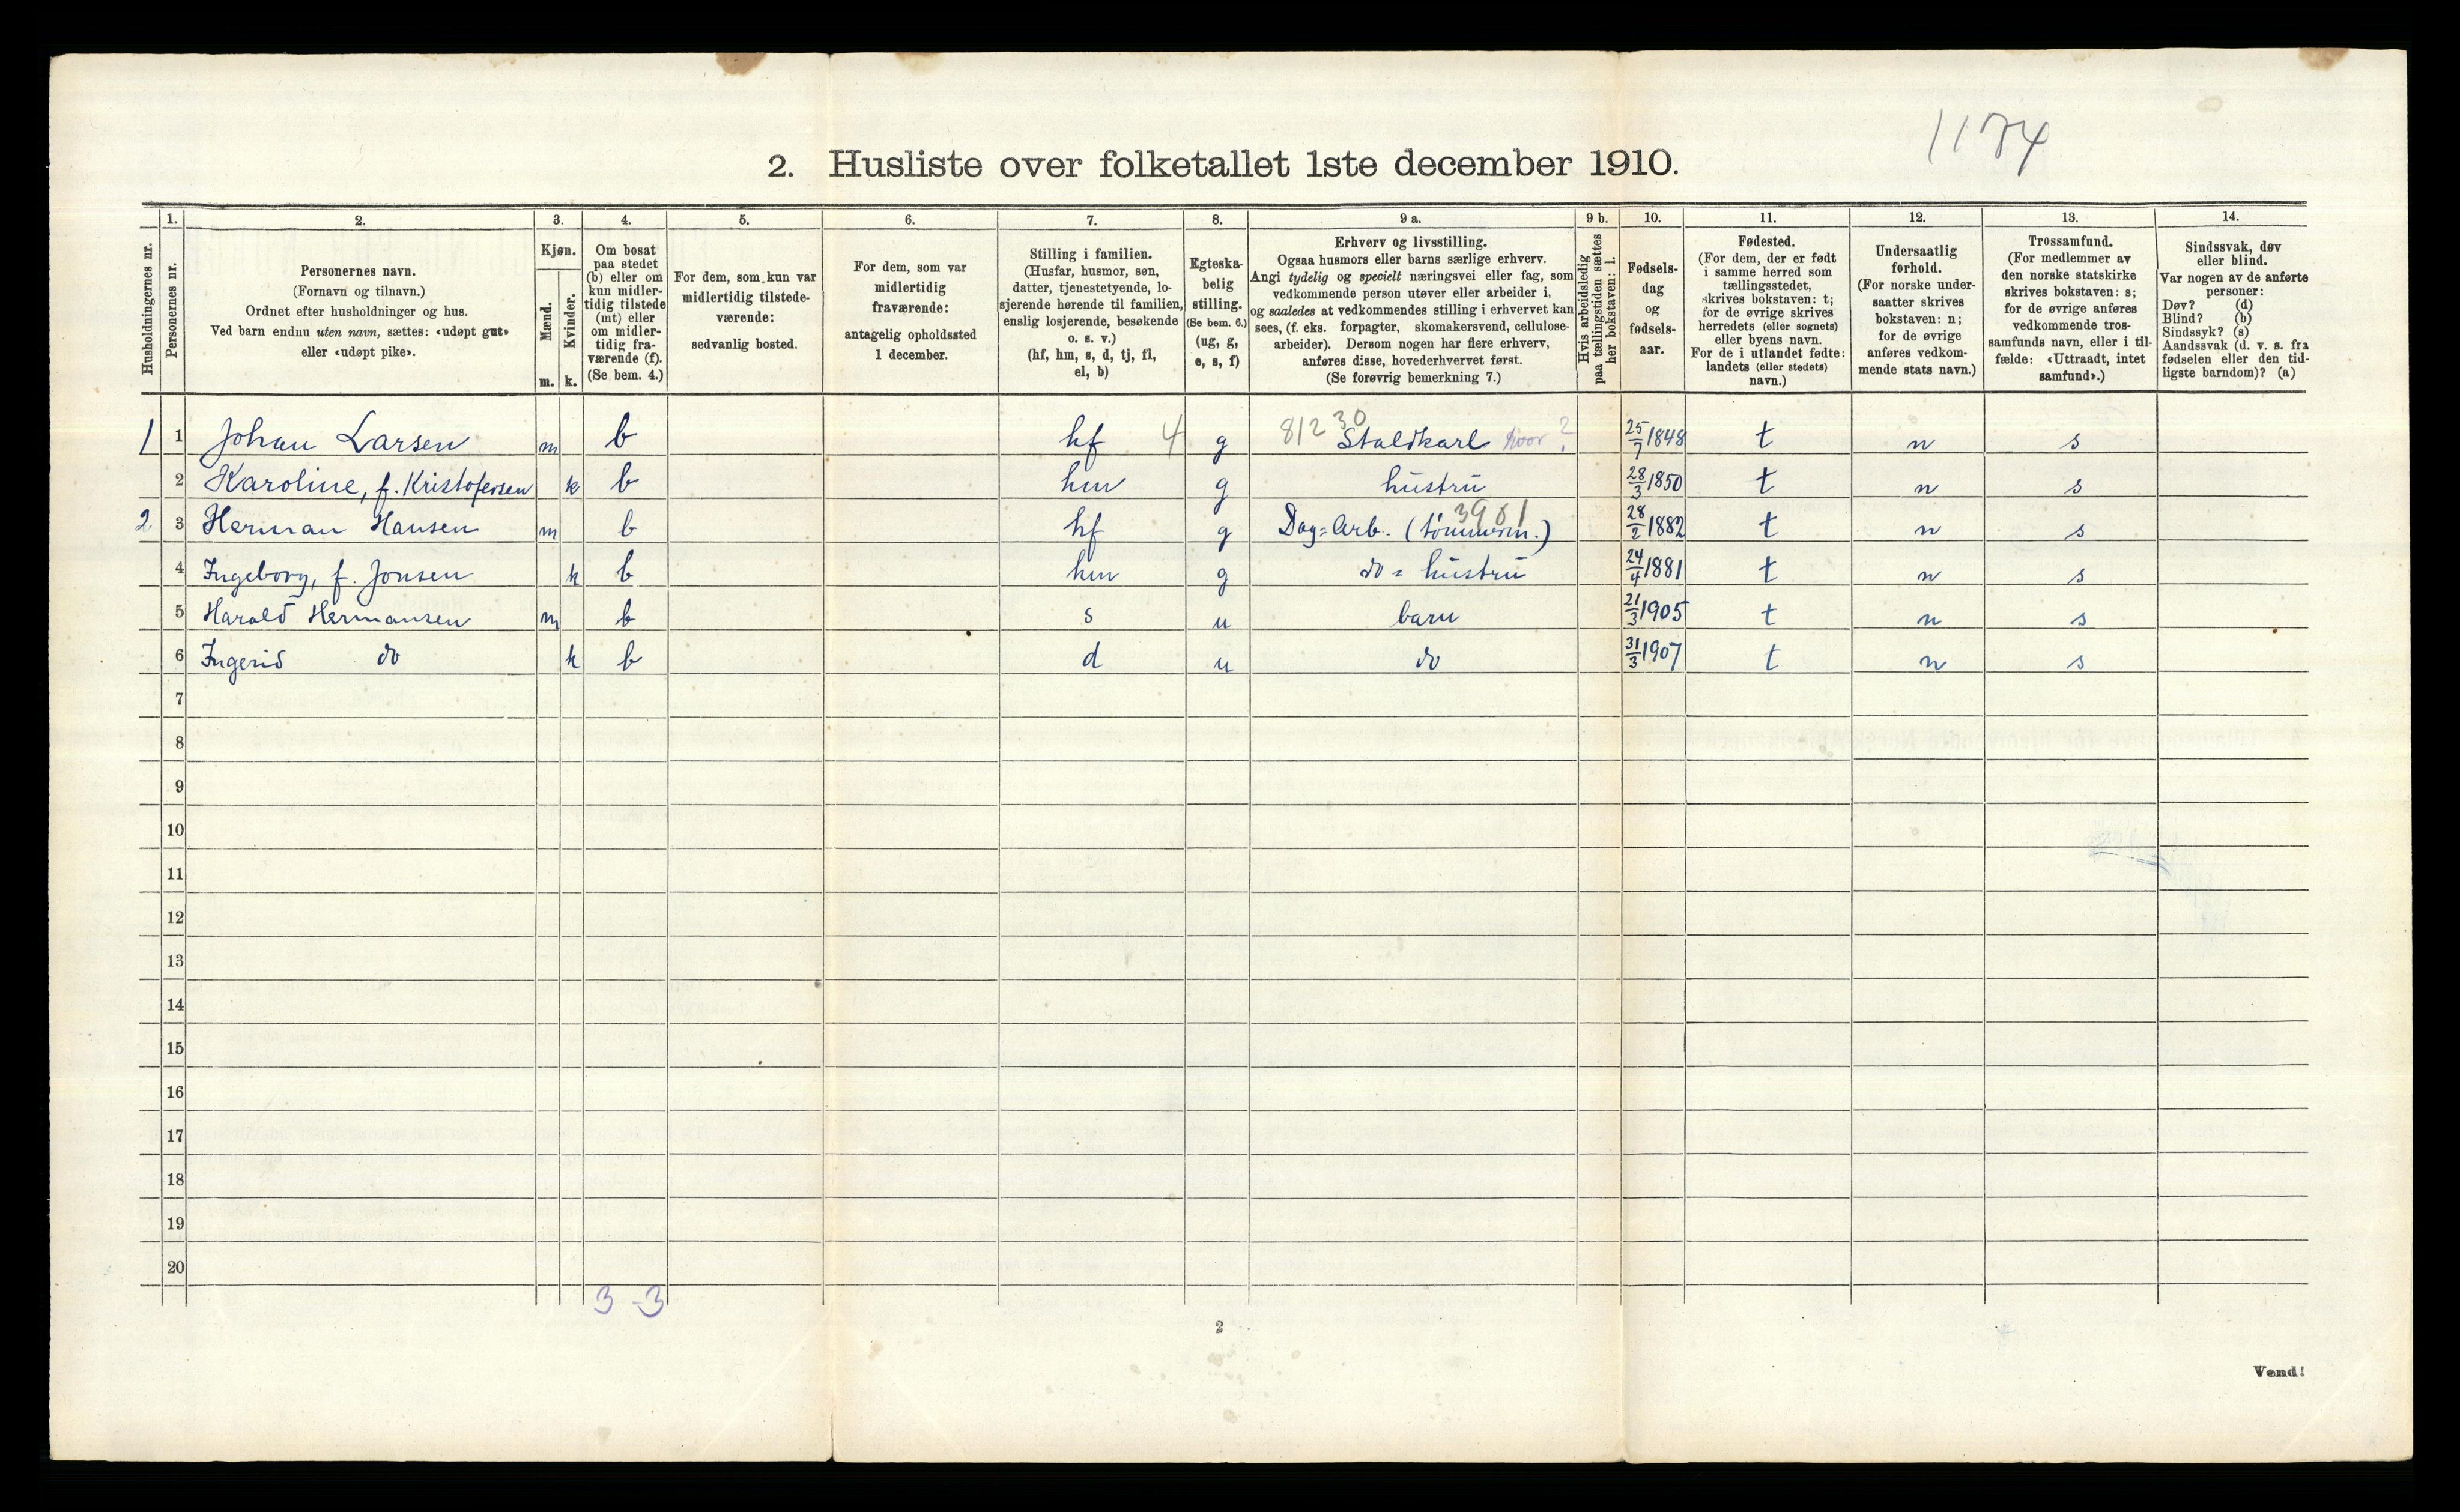 1174
2. Husliste over folketallet 1ste december 1910.
Husholdningernes nr.
1.
Personernes nr.
2.
Personernes navn.
(Fornavn og tilnavn.)
Ordnet efter husholdninger og hus.
Ved barn endnu uten navn, sættes: «udøpt gut»
eller «udøpt pike».
3.
Kjøn.
Mænd.
Kvinder.
m. k.
4.
Om bosat
paa stedet
(b) eller om
kun midler-
tidig tilstede
(mt) eller
om midler-
tidig fra-
værende (f).
(Se bem. 4.)
5.
For dem, som kun var
midlertidig tilstede-
værende:
sedvanlig bosted.
6.
For dem, som var
midlertidig
fraværende:
antagelig opholdssted
1 december.
7.
Stilling i familien.
(Husfar, husmor, søn,
datter, tjenestetyende, lo-
sjerende hørende til familien,
enslig losjerende, besøkende
o. s. v.)
(hf, hm, s, d, tj, fl,
el, b)
8.
Egteska-
belig
stilling.
(Se bem. 6.)
(ug, g,
e, s, f)
9 a.
Erhverv og livsstilling.
Ogsaa husmors eller barns særlige erhverv.
Angi tydelig og specielt næringsvei eller fag, som
vedkommende person utøver eller arbeider i,
og saaledes at vedkommendes stilling i erhvervet kan
sees, (f. eks. forpagter, skomakersvend, cellulose-
arbeider). Dersom nogen har flere erhverv,
anføres disse, hovederhvervet først.
(Se forøvrig bemerkning 7.)
9 b.
Hvis arbeidsledig
paa tællingstiden sættes
her bokstaven: l.
10.
Fødsels-
dag
og
fødsels-
aar.
11.
Fødested.
(For dem, der er født
i samme herred som
tællingsstedet,
skrives bokstaven: t;
for de øvrige skrives
herredets (eller sognets)
eller byens navn.
For de i utlandet fødte:
landets (eller stedets)
navn.)
12.
Undersaatlig
forhold.
(For norske under-
saatter skrives
bokstaven: n;
for de øvrige
anføres vedkom-
mende stats navn.)
13.
Trossamfund.
(For medlemmer av
den norske statskirke
skrives bokstaven: s;
for de øvrige anføres
vedkommende tros-
samfunds navn, eller i til-
fælde: «Uttraadt, intet
samfund».)
14.
Sindssvak, døv
eller blind.
Var nogen av de anførte
personer:
Døv? (d)
Blind? (b)
Sindssyk? (s)
Aandssvak (d. v. s. fra
fødselen eller den tid-
ligste barndom)? (a)
81230
1 1 Johan Larsen m b hf 4 g Staldkarl hvor? 25/7 1848 t n s
2 Karoline, f. Kristofersen k b hm g hustru 28/3 1850 t n s
3901
2 3 Herman Hansen m b hf g Dag=Arb. (tømmerm.) 28/2 1882 t n s
4 Ingeborg, f. Jonsen k b hm g do = hustru 24/4 1881 t n s
5 Harald Hermansen m b s u barn 21/3 1905 t n s
6 Ingerid do k b d u do 31/3 1907 t n s
7
8
9
10
11
12
13
14
15
16
17
18
19
20
3 - 3
2
Vend!